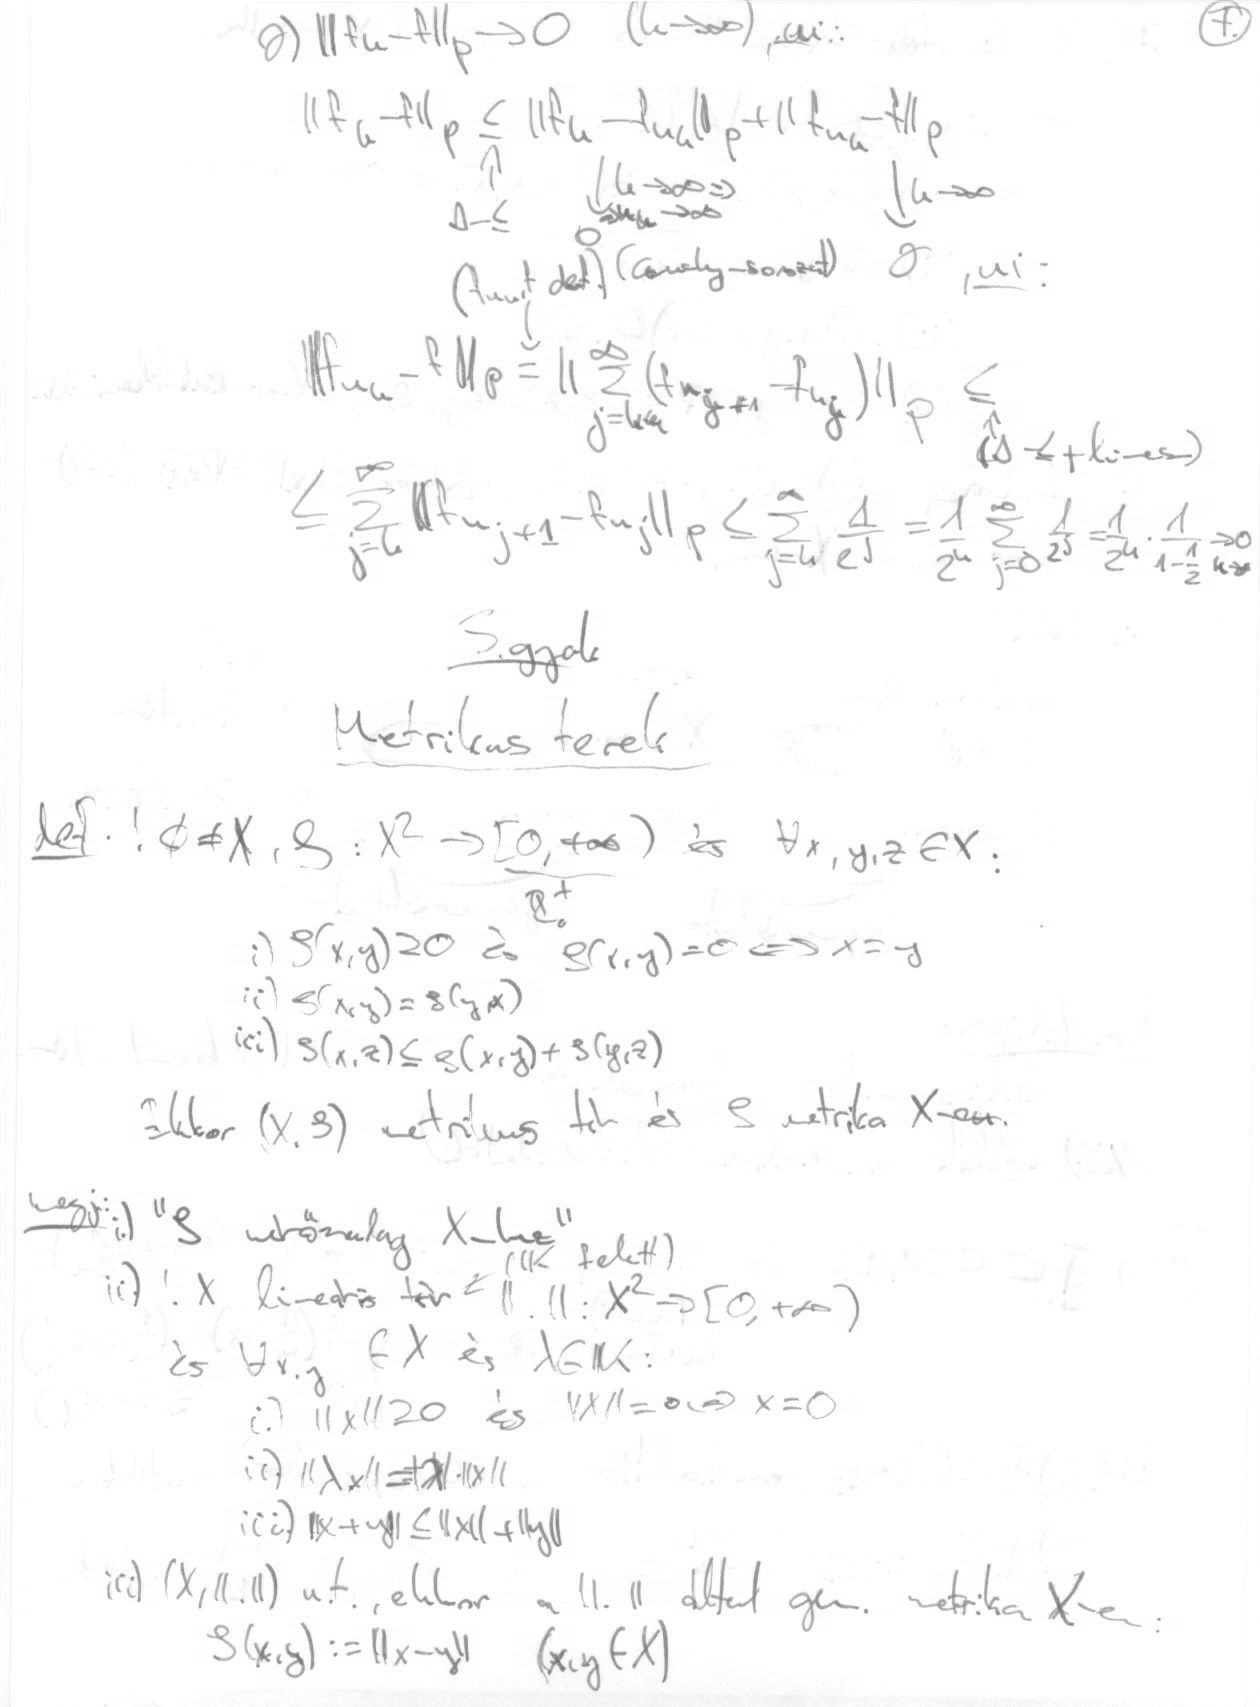 7.
∂) ||f_k - f||_p → 0 (k→∞), ui.:
||f_k - f||_p ≤ ||f_k - f_{n_k}||_p + ||f_{n_k} - f||_p
↑ ↓ k→∞ ⇒ ↓ k→∞
Δ-≤ ⇒ n_k→∞
0 (Cauchy-sorozat) 0, ui:
(f_{n_k}-t def.)
||f_{n_k} - f||_p = ||∑_{j=k}^∞ (f_{n_{j+1}} - f_{n_j})||_p ≤
(Δ-≤ +
≤ ∑_{j=k}^∞ ||f_{n_{j+1}} - f_{n_j}||_p ≤ ∑_{j=k}^∞ 1/2^j = 1/2^k ∑_{j=0}^∞ 1/2^j = 1/2^k · 1/(1-1/2) → 0 k→∞
gyak
Metrikus terek
def.: ! ∅ ≠ X, ρ : X² → [0, +∞) és ∀x, y, z ∈ X:
ℝ₀⁺
i) ρ(x,y) ≥ 0 és ρ(x,y) = 0 ⇔ x = y
ii) ρ(x,y) = ρ(y,x)
iii) ρ(x,z) ≤ ρ(x,y) + ρ(y,z)
Ekkor (X, ρ) metrikus tér és ρ metrika X-en.
megj.: i) "ρ X-hez"
(𝕂 felett)
ii) ! X lineáris tér ||.|| : X² → [0, +∞)
és ∀x, y ∈ X és λ ∈ 𝕂:
i.) ||x|| ≥ 0 és ||x|| = 0 ⇔ x = 0
ii) ||λx|| = |λ|·||x||
iii) ||x + y|| ≤ ||x|| + ||y||
iii) (X, ||.||) n.t., ekkor a ||.|| által gen. metrika X-en:
ρ(x,y) := ||x - y|| (x, y ∈ X)